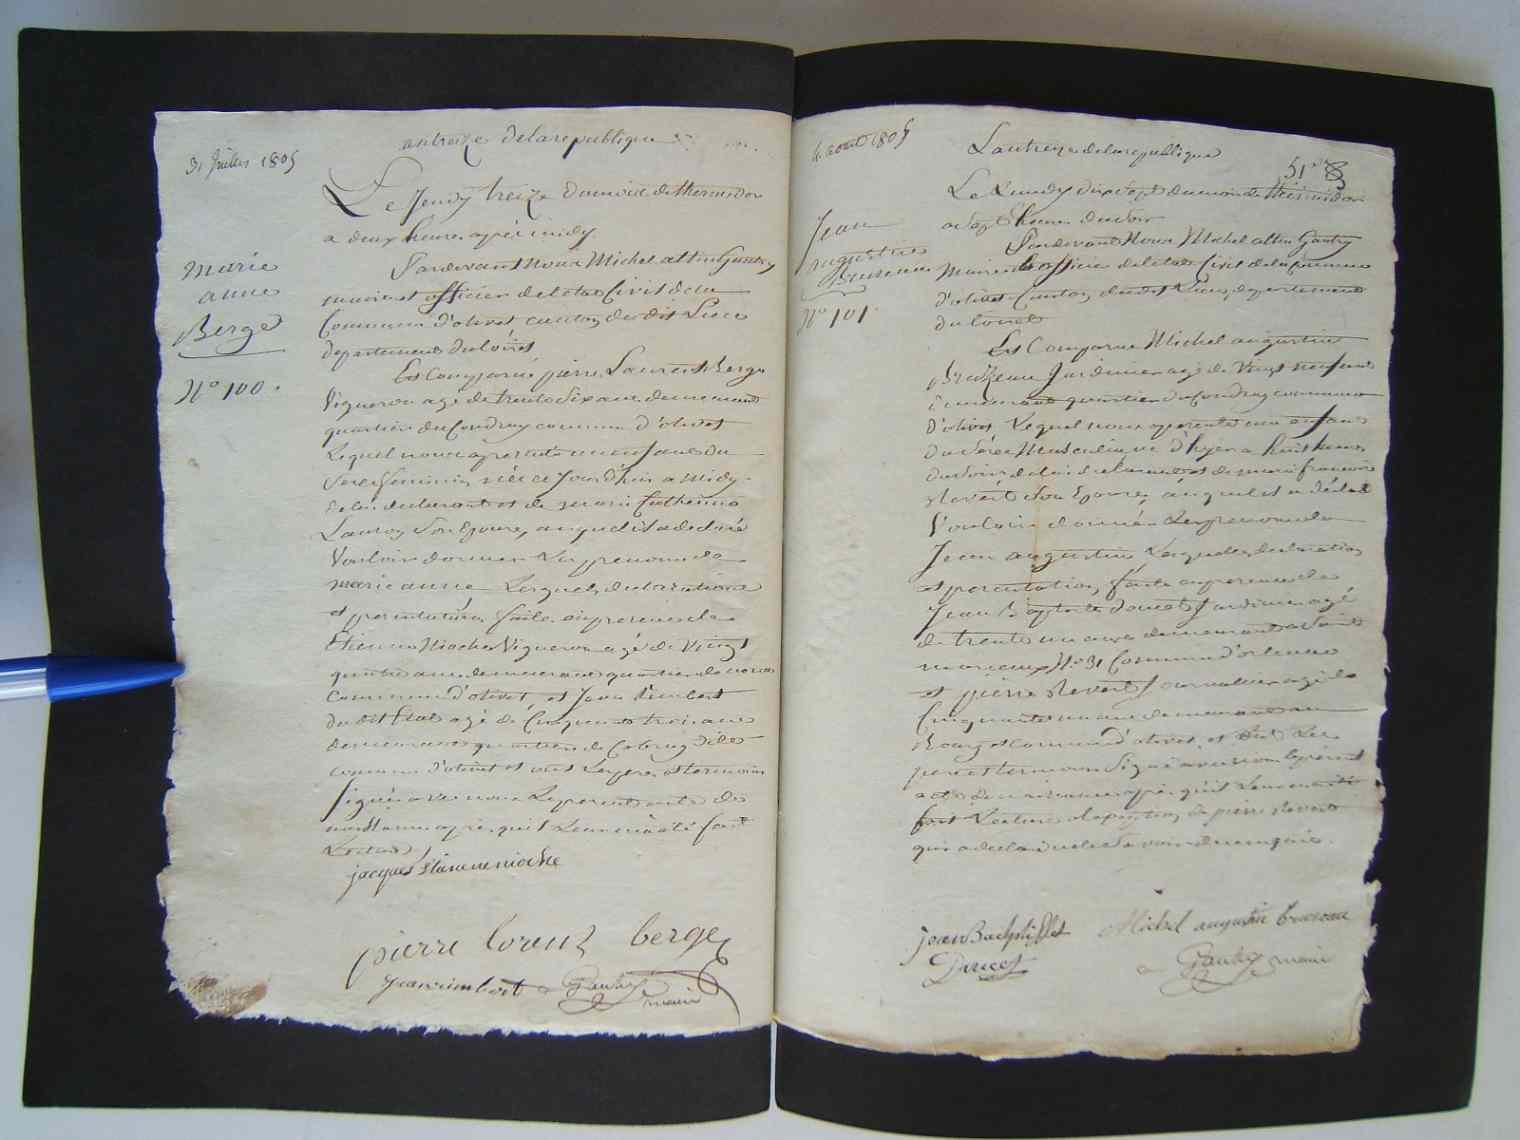 31 Juillet 1805
an treize de la republique
Le Jeudy treize du mois de thermidor
a deux heures après midy
Marie
anne
Bergé
N° 100.
Pardevant Nous Michel attin Gautry
maire et officier de letat Civil de la
Commune d'olivet canton du dit Lieu
departement du loiret
Est Comparu pierre Laurent Berge
Vigneron agé de trente six ans demeurant
quartier du Coudray commune d'olivet
Lequel nous a presenté un enfant du
Sexe feminin née ce Jourd'hui a midy
de lui declarant et de marie Catherine
son Epouse, auquel il a declaré
Vouloir donner les prenoms de
marie anne Lesquels declaration
et presentation faite en presence de
Etienne Nioche Vigneron agé de Vingt
quatre ans demeurant quartier de
commune d'olivet et Jean Rimbert
du dit Etat agé de Cinquante trois ans
demeurant quartier de
commune d'olivet et ont Les pere et temoins
signé avec nous Le present acte de
naissance après qu'il Leur en a été fait
Lecture
jacques etienne nioche
pierre lorent berge
jean rimbert Gautry maire
4 aout 1805
Lan treize de la republique
51
Le Lundy dix sept du mois de thermidor
a sept heures du soir
Jean
augustin
Bruzeau
N° 101
Pardevant Nous Michel attin Gautry
Maire et officier de letat Civil de la Commune
d'olivet Canton du dit Lieu, departement
du loiret
Est Comparu Michel augustin
Bruzeau Jardinier agé de Vingt neuf ans
demeurant quartier du Coudray commune
d'olivet Lequel nous a presenté un enfant
du Sexe Masculin né d'hyer a huit heures
du soir de lui declarant et de marie françoise
Revert son Epouse, auquel il a déclaré
Vouloir donner Les prenoms de
Jean augustin Lesquels declaration
et presentation faite en presence de
Jean Baptiste Doucet Jardinier agé
de trente un ans demeurant
N° 31 Commune d'orleans
et pierre Revert Journalier agé de
Cinquante un ans demeurant au
Bourg et commune d'olivet, et ont Les
pere et temoin signé avec nous le présent
acte de naissance après qu'il Leur en a été
fait Lecture a l'exception de pierre Revert
qui a declaré ne le savoir de ce enquis.
jean Bachptiste
Doucet
Michel augustin bruseau
Gautry maire